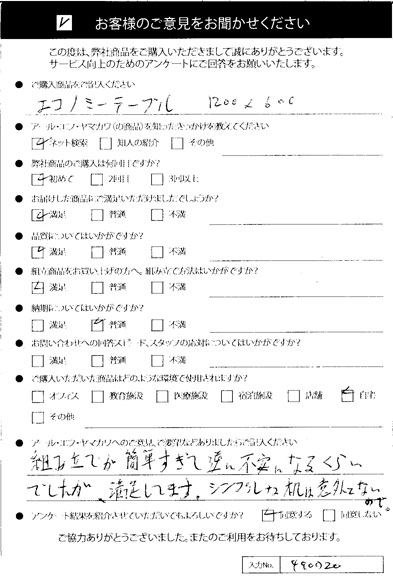 お客様のご意見をお聞かせください
この度は、弊社商品をご購入いただきまして誠にありがとうございます。
サービス向上のためのアンケートにご回答をお願いいたします。
● ご購入商品をご記入ください
エコノミーテーブル 1200×600
● アール・エフ・ヤマカワ(の商品)を知ったきっかけを教えてください
ネット検索 知人の紹介 その他
● 弊社商品のご購入は何回目ですか?
初めて 2回目 3回以上
● お届けした商品にご満足いただけましたでしょうか?
満足 普通 不満
● 品質についてはいかがですか?
満足 普通 不満
● 組立商品をお買い上げの方へ。組み立て方法はいかがですか?
満足 普通 不満
● 納期についてはいかがですか?
満足 普通 不満
● お問い合わせへの回答スピード、スタッフの応対についてはいかがですか?
満足 普通 不満
● ご購入いただいた商品はどのような環境で使用されますか?
オフィス 教育施設 医療施設 宿泊施設 店舗 自宅
その他
● アール・エフ・ヤマカワへのご意見、ご要望などありましたらご記入ください
組み立てが簡単すぎて逆に不安になるくらい
でしたが、満足してます。シンプルな机は意外とないので。
● アンケート結果を紹介させていただいてもよろしいですか?
同意する 同意しない
ご協力ありがとうございました。またのご利用をお待ちしております。
入力No. 490720